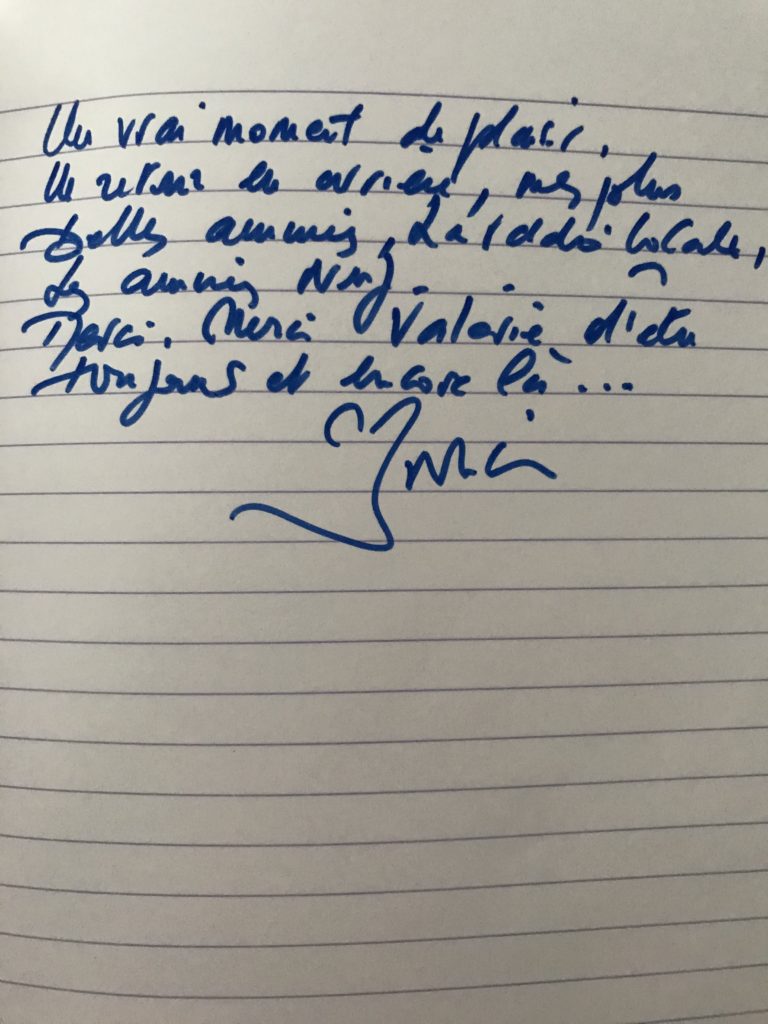 Un vrai moment de plaisir.
Un retour en arrière, mes plus
belles années, La radio locale,
les années NRJ.
Merci. Merci Valérie d'être
toujours et encore là...